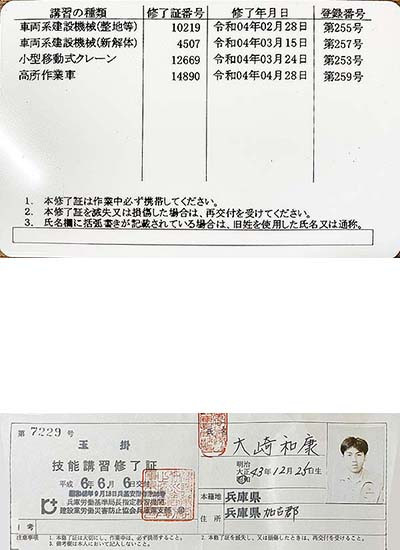 講習の種類 修了証番号 修了年月日 登録番号
車両系建設機械(整地等) 10219 令和04年02月28日 第255号
車両系建設機械(新解体) 4507 令和04年03月15日 第257号
小型移動式クレーン 12669 令和04年03月24日 第253号
高所作業車 14890 令和04年04月28日 第259号
1. 本修了証は作業中必ず携帯してください。
2. 本修了証を滅失又は損傷した場合は、再交付を受けてください。
3. 氏名欄に括弧書きが記載されている場合は、旧姓を使用した氏名又は通称。
第 7229 号
玉掛
技能講習修了証
平成 6年 6月 6日交付
兵庫労働基準局長指定教習機関
建設業労働災害防止協会兵庫県支部
氏名 大崎和康
明治
大正 43年12月25日生
昭和
本籍地 兵庫県
住所 兵庫県加古郡
備考
注意事項
1. 本修了証は大切にし、作業中は、必ず携帯すること。
2. 本修了証を滅失し、又は損傷したときは、再交付を受けること。
3. 備考欄は本人において記入しないこと。